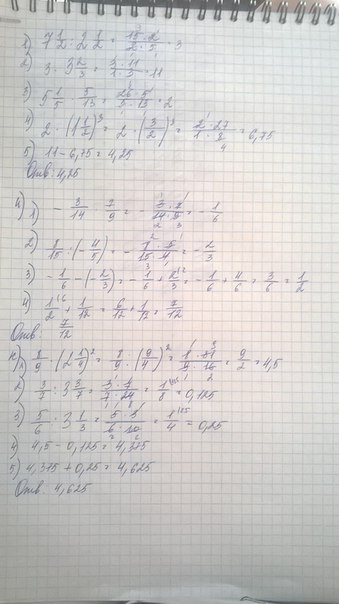 1) 7 1/2 : 2 1/2 = 15·2/2·5 = 3
2) 3 · 3 2/3 = 3·11/1·3 = 11
3) 5 1/5 · 5/13 = 26·5/5·13 = 2
4) 2 · (1 1/2)³ = 2 · (3/2)³ = 2·27/1·8 = 6,75
5) 11 - 6,75 = 4,25
Отв: 4,25
1) - 3/14 · 7/9 = - 3·7/14·9 = - 1/6
2) 8/15 : (- 4/5) = - 8·5/15·4 = - 2/3
3) - 1/6 - (- 2/3) = - 1/6 + 2/3 = - 1/6 + 4/6 = 3/6 = 1/2
4) 1/2 + 1/12 = 6/12 + 1/12 = 7/12
Отв. 7/12
1) 8/9 · (2 1/4)² = 8/9 · (9/4)² = 8·81/9·16 = 9/2 = 4,5
2) 3/7 : 3 3/7 = 3·7/7·24 = 1/8 = 0,125
3) 5/6 : 3 1/3 = 5·3/6·10 = 1/4 = 0,25
4) 4,5 - 0,125 = 4,375
5) 4,375 + 0,25 = 4,625
Отв: 4,625